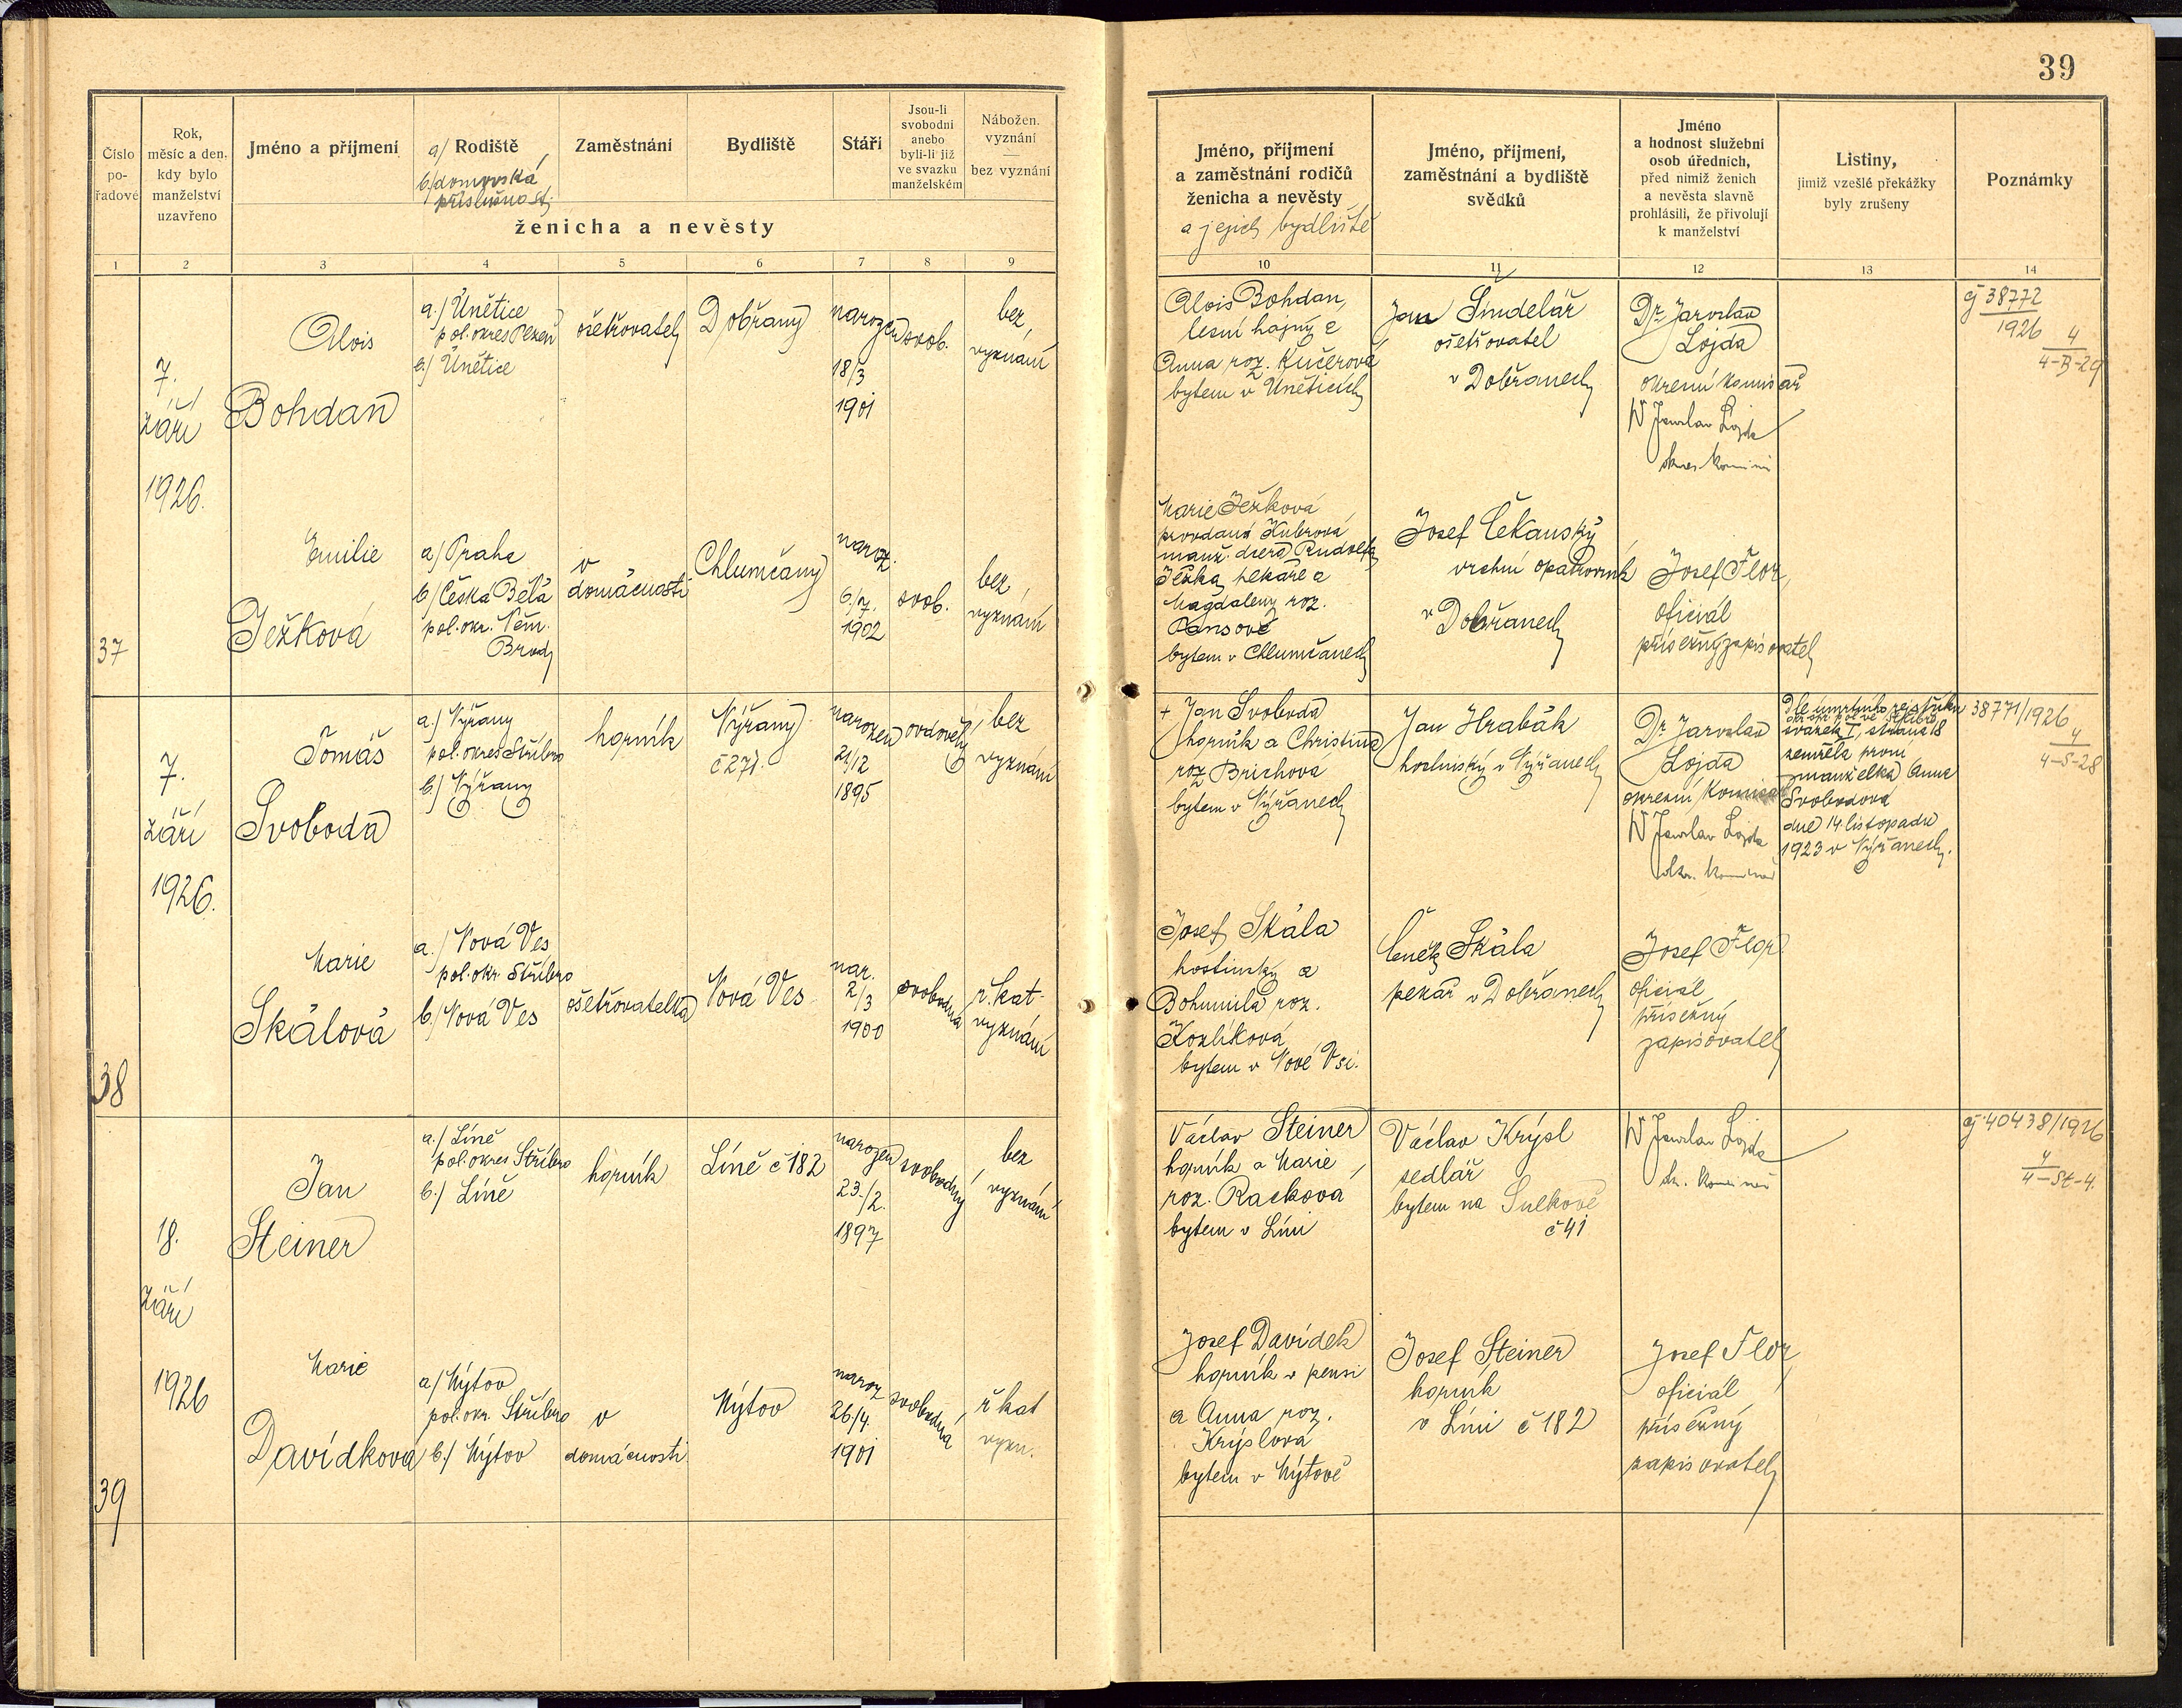 39
Číslo
po-
řadové
Rok,
měsíc a den,
kdy bylo
manželství
uzavřeno
Jméno a příjmení
a/ Rodiště
b/ domovská
příslušnost
Zaměstnání
Bydliště
Stáří
Jsou-li
svobodni
anebo
byli-li již
ve svazku
manželském
Nábožen.
vyznání
—
bez vyznání
ženicha a nevěsty
Jméno, příjmení
a zaměstnání rodičů
ženicha a nevěsty
a jejich bydliště
Jméno, příjmení,
zaměstnání a bydliště
svědků
Jméno
a hodnost služební
osob úředních,
před nimiž ženich
a nevěsta slavně
prohlásili, že přivolují
k manželství
Listiny,
jimiž vzešlé překážky
byly zrušeny
Poznámky
1 2 3 4 5 6 7 8 9 10 11 12 13 14
37
7.
září
1926.
Alois
Bohdan
a.) Únětice
pol. okres Plzeň
b.) Únětice
ošetřovatel
Dobřany
narozen
18/3
1901
svob.
bez
vyznání
Alois Bohdan,
lesní hajný a
Anna roz. Kučerová
bytem v Úněticích
Jan Šindelář
ošetřovatel
v Dobřanech
Dr. Jaroslav
Lojda
okresní komisař
Dr Jaroslav Lojda
okres. komisař
čj 38772
1926
4
4-B-29
Emilie
Ježková
a) Praha
b) Česká Bělá
pol. okr. Něm.
Brod
v
domácnosti
Chlumčany
naroz.
6./7.
1902
svob.
bez
vyznání
Marie Ježková
provdaná Kubrová
manž. dcera Rudolfa
Ježka, pekaře a
Magdaleny roz.
bytem v Chlumčanech
Josef Čekanský
vrchní opatrovník
v Dobřanech
Josef Flor,
oficiál
přísežný zapisovatel
38
7.
září
1926.
Tomáš
Svoboda
a.) Nýřany
pol. okres Stříbro
b.) Nýřany
horník
Nýřany
č 271.
narozen
21/12
1895
ovdovělý
bez
vyznání
+ Jan Svoboda
horník a Christina
roz. Brichová
bytem v Nýřanech
Jan Hrabák
hostinský v Nýřanech
Dr. Jaroslav
Lojda
okresní komisař
Dr Jaroslav Lojda
okr. komisař
Dle úmrtního rejstříku
okr. spr. pol. ve Stříbře
svazek I, strana 18
zemřela první
manželka Anna
Svobodová
dne 14 listopadu
1923 v Nýřanech.
38771/1926
4
4-S-28
Marie
Skálová
a.) Nová Ves
pol. okr. Stříbro
b.) Nová Ves
ošetřovatelka
Nová Ves
nar.
2/3
1900
svobodná
ř. kat.
vyznání
Josef Skála
hostinský a
Bohumila roz.
Kozlíková
bytem v Nové Vsi.
Čeněk Skála
pekař v Dobřanech
Josef Flor
oficiál
přísežný
zapisovatel
39
18.
září
1926
Jan
Steiner
a.) Líně
pol. okres Stříbro
b.) Líně
horník
Líně č 182
narozen
23./2.
1897
svobodný
bez
vyznání
Václav Steiner
horník a Marie
roz. Racková
bytem v Líni
Václav Krýsl
sedlář
bytem na Sulkově
č 41
Dr Jaroslav Lojda
okr. komisař
čj 40438/1926
4
4-St-4.
Marie
Davídková
a/ Mýtov
pol. okr. Stříbro
b.) Mýtov
v
domácnosti
Mýtov
naroz
26/4.
1901
svobodná
ř kat
vyzn.
Josef Davídek
horník v pensi
a Anna roz.
Krýslová
bytem v Mýtově
Josef Steiner
horník
v Líni č 182
Josef Flor,
oficiál
přísežný
zapisovatel